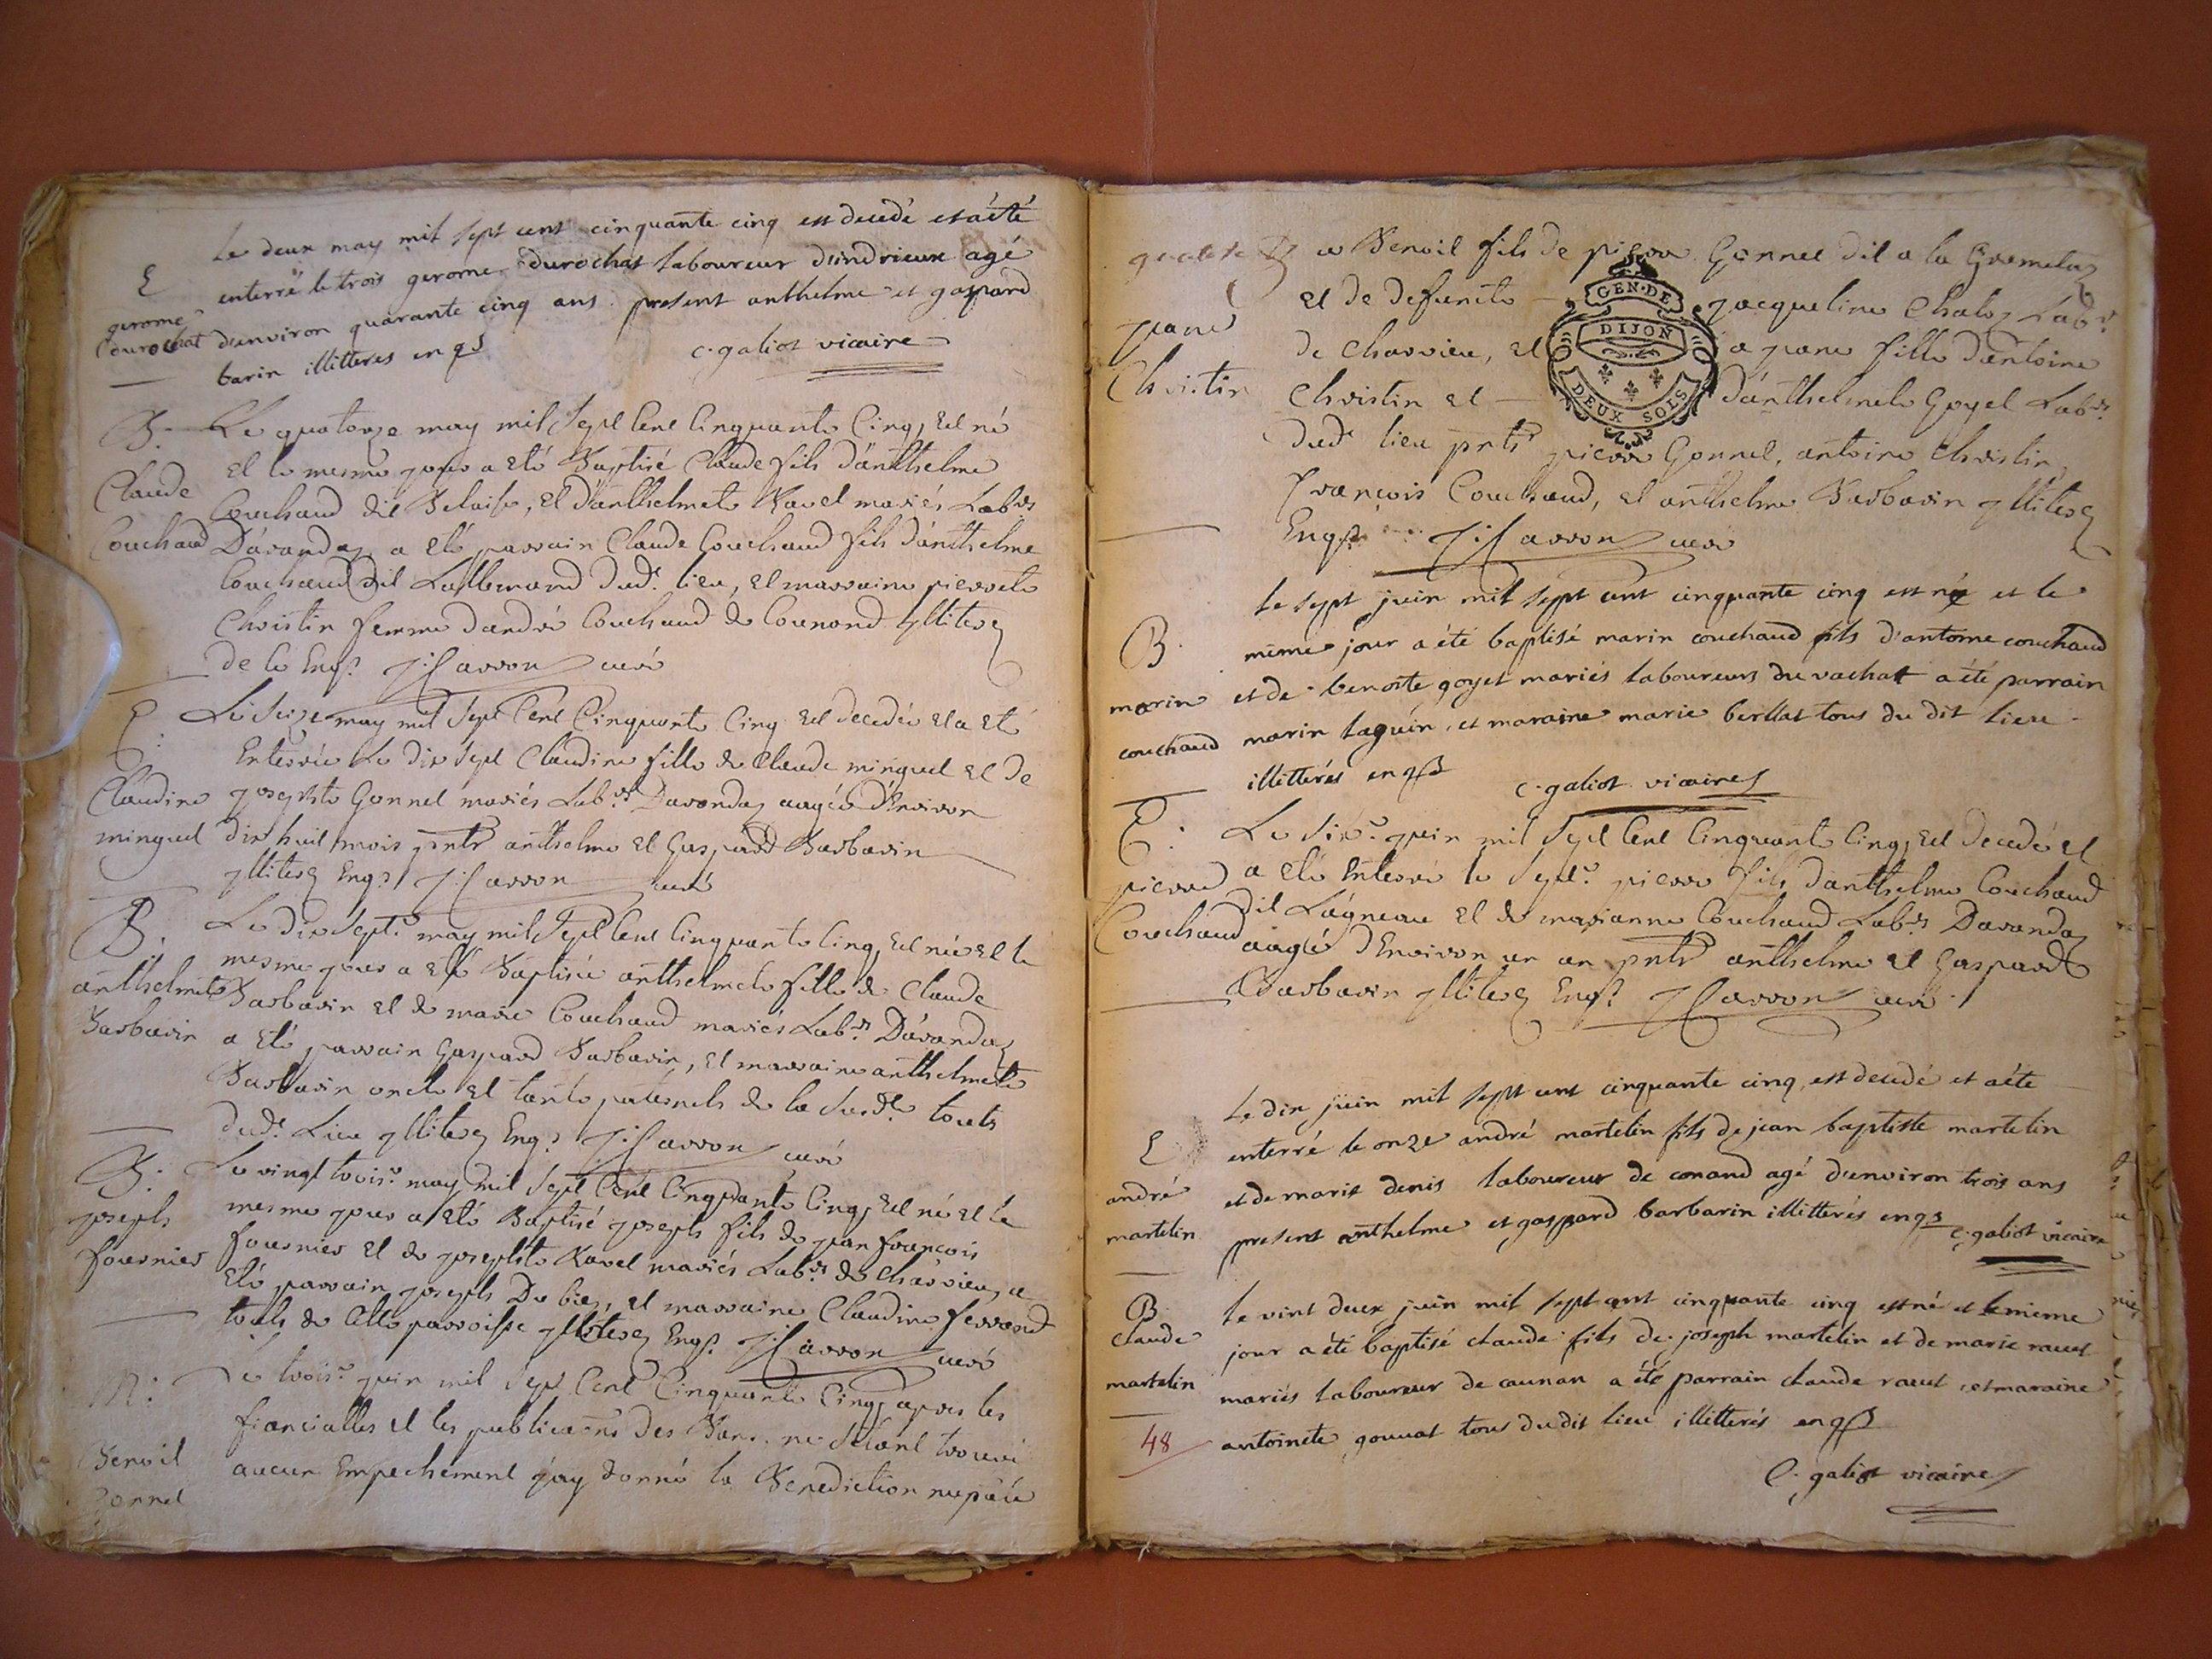 Le deux may mil sept cent cinquante cinq est decedé et a été
E
enterré le trois gerome durochat laboureur dindrieux agé
gerome
durochat
d'environ quarante cinq ans present anthelme et gaspard
barin illitteres enqs
c. galiot vicaire
B.
Le quatorze may mil Sept Cent Cinquante Cinq, Est né
Et le mesme jour a Eté Baptisé Claude fils d'anthelme
Claude
Couchaud
Couchaud dit Belaise, Et d'anthelmete Ravel mariés Labrs
D'avanday a Eté parrain Claude Couchaud fils d'anthelme
Couchaud dit Lallemand dud. lieu, Et marraine pierrete
Christin femme d'andré Couchaud de Counand Illiterez
de ce Enqs. J: Carron curé
E:
Le Seize may mil Sept Cent Cinquante Cinq Est decedée Et a Eté
Enterrée Le dix Sept Claudine fille de Claude minguet Et de
Claudine
minguet
josephte Gonnel mariés Labrs. Davanday aagée d'Environ
dix huit mois pnts anthelme Et Gaspard Barbarin
jlliterez Enqs. J: Carron curé
B.
Le dix Septe. may mil Sept Cent Cinquante Cinq, Est née Et le
mesme jour a Eté Baptisée anthelmete fille de Claude
anthelmete
Barbarin
Barbarin Et de marie Couchaud mariés Labrs. D'avanday
a Eté parrain Gaspard Barbarin, Et marraine anthelmete
Barbarin oncle Et tante paternels de la Susdte. touts
dud. Lieu jlliterez Enqs. J: Carron curé
B.
Le vingt troise. may mil Sept Cent Cinquante Cinq, Est né Et le
mesme jour a Eté Baptisé joseph fils de jean françois
joseph
fournier
fournier Et de josephte Ravel mariés Labrs. de Charvieu, a
Eté parrain joseph Du biez, Et marraine Claudine ferrand
touts de Cette parroisse jlliterez Enqs. J: Carron curé
M:
Le troise. juin mil Sept Cent Cinquante Cinq, apres les
fiancialles Et les publicaons des Bans, ne S'étant trouvé
Benoit
Gonnel
aucun Empechement j'ay donné la Benediction nuptiale
&
a Benoit fils de pierre Gonnel dit a la Gramelaz
Et de defuncte jacqueline Chaley Labr.
jeane
Christin
de Charvieu, Et a jeane fille d'antoine
Christin Et d'anthelmete Goyet Labrs.
GEN. DE
DIJON
DEUX SOLS
dud. lieu pnts pierre Gonnel, antoine Christin,
françois Couchaud, Et anthelme Barbarin jlliterez
Enqs. J: Carron curé
le sept juin mil sept cent cinquante cinq est né et le
B.
même jour a été baptisé marin couchaud fils d'antoine couchaud
marin
couchaud
et de benoite goyet mariés laboureurs du vachat a été parrain
marin laguin, et maraine marie berllat tous du dit lieu
illitterés enqs
c. galiot vicaire
E:
Le Sixe. juin mil Sept Cent Cinquante Cinq, Est decedé Et
pierre
Couchaud
a Eté Enterré le Septe. pierre fils d'anthelme Couchaud
dit Lagneau Et de marianne Couchaud Labrs Davanday
aagé d'Environ un an pnts anthelme Et Gaspard
Barbarin jlliterez Enqs. J Carron curé
Le dix juin mil sept cent cinquante cinq, est decedé et a éte
E
enterré le onze andré martelin fils de jean baptiste martelin
andré
martelin
et de marie denis laboureur de conand agé d'environ trois ans
present anthelme et gaspard barbarin illitterés enqs c. galiot vicaire
B.
le vint deux juin mil sept cent cinquante cinq est né et le mieme
claude
martelin
jour a été baptisé claude fils de joseph martelin et de marie ravet
mariés laboureur de caunan a été parrain claude ravet, et maraine
48
antoinete gonnat tous dudit lieu illitterés enqs
C. galiot vicaire